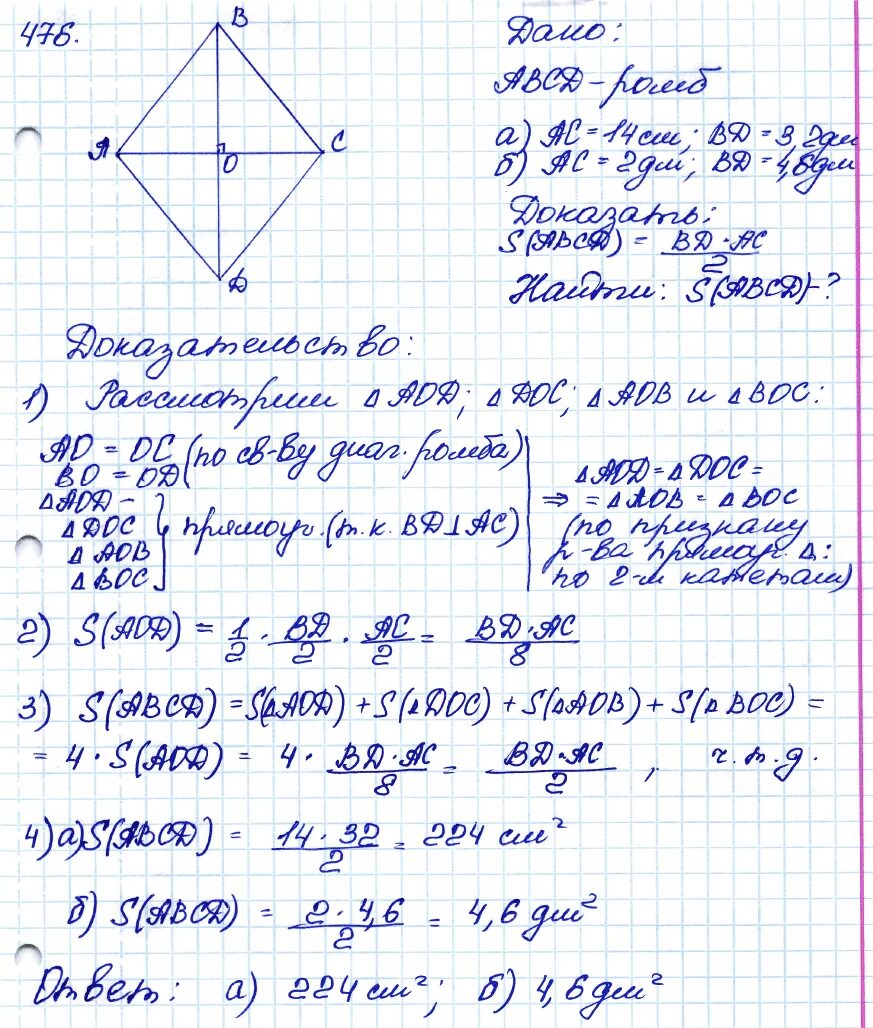 476.
B
A
C
O
D
Дано:
ABCD - ромб
а) AC = 14 см; BD = 3,2 дм
б) AC = 2 дм; BD = 4,6 дм
Доказать:
S(ABCD) = BD·AC / 2
Найти: S(ABCD) - ?
Доказательство:
1) Рассмотрим △AOD; △DOC; △AOB и △BOC:
AO = OC (по св-ву диаг. ромба)
BO = OD
△AOD -
△DOC
△AOB
△BOC
прямоуг. (т.к. BD⊥AC)
△AOD = △DOC =
⇒ = △AOB = △BOC
(по признаку
р-ва прямоуг. △:
по 2-м катетам)
2) S(AOD) = 1/2 · BD/2 · AC/2 = BD·AC / 8
3) S(ABCD) = S(△AOD) + S(△DOC) + S(△AOB) + S(△BOC) =
= 4 · S(AOD) = 4 · BD·AC / 8 = BD·AC / 2 , ч.т.д.
4) а) S(ABCD) = 14·32 / 2 = 224 см²
б) S(ABCD) = 2·4,6 / 2 = 4,6 дм²
Ответ: а) 224 см²; б) 4,6 дм²